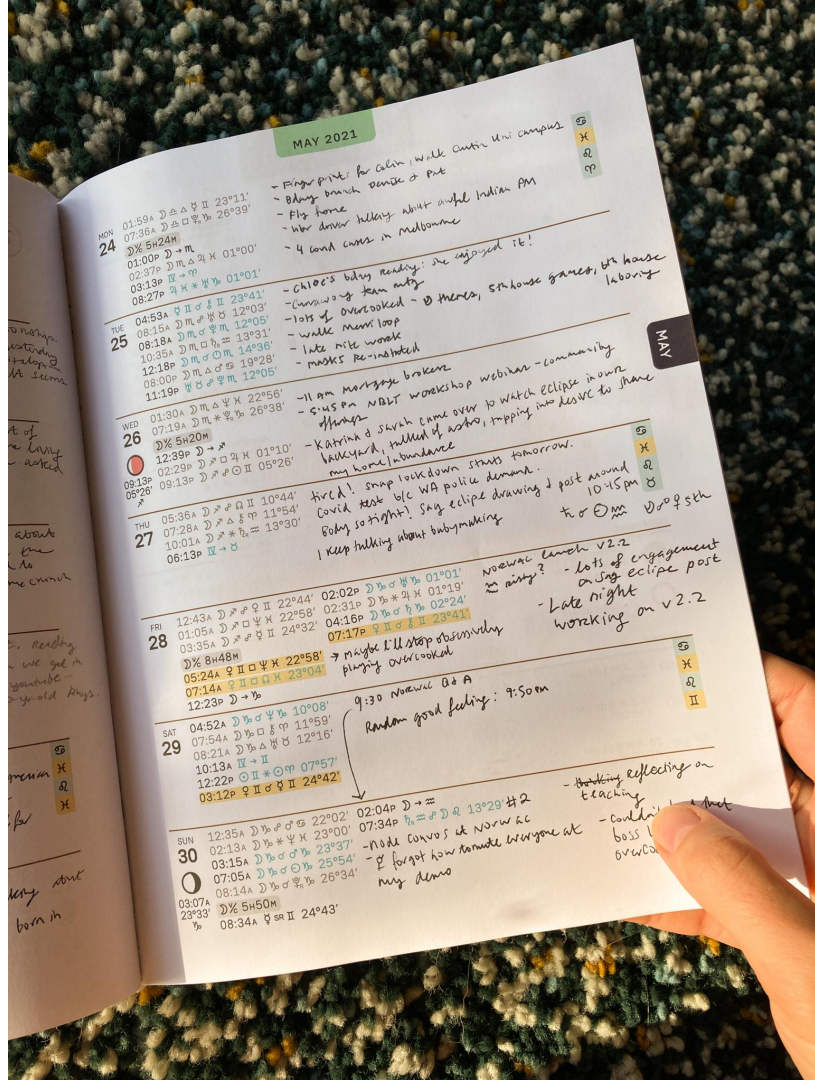 MAY 2021
MON
24
01:59A ☽ ♎ △ ☿ ♊ 23°11'
07:36A ☽ ♎ □ ♇ ♑ 26°39'
☽% 5H24M
01:00P ☽ → ♏
02:37P ☽ ♏ △ ♃ ♓ 01°00'
03:13P IV → ♈
08:27P ♃ ♓ ✶ ♅ ♑ 01°01'
- Fingerprints for Colin, walk Curtin Uni campus
- Bday brunch Denise & Pat
- Fly home
- Uber driver talking about awful Indian PM
- 4 covid cases in Melbourne
♋
♓
♌
♈
TUE
25
04:53A ☿ ♊ ☌ ⚷ ♊ 23°41'
08:15A ☽ ♏ ☍ ♅ ♉ 12°03'
08:18A ☽ ♏ ☌ ♏ 12°05'
10:35A ☽ ♏ □ ♄ ♒ 13°31'
12:18P ☽ ♏ ☌ ♏ 14°36'
08:00P ☽ ♏ △ ♂ ♋ 19°28'
11:19P ♅ ♉ ☍ ♏ 12°05'
- Chloe's bday reading: she enjoyed it!
- Currawong team mtg
- lots of overcooked - themes, 5th house games, 6th house
laboring
- walk Merri loop
- late nite work
- masks re-instated
MAY
WED
26
09:13P
05°26'
♐
01:30A ☽ ♏ △ ♆ ♓ 22°56'
07:19A ☽ ♏ ✶ ♇ ♑ 26°38'
☽% 5H20M
12:39P ☽ → ♐
02:29P ☽ ♐ □ ♃ ♓ 01°10'
09:13P ☽ ♐ ☍ ☉ ♊ 05°26'
- 11 AM Mortgage brokers
- 5:45pm NBLT workshop webinar - community
offerings
- Katrina & Sarah came over to watch eclipse in our
backyard, talked of astro, tapping into desire to share
my home/abundance
THU
27
05:36A ☽ ♐ ☍ ☊ ♊ 10°44'
07:28A ☽ ♐ △ ⚷ ♈ 11°54'
10:01A ☽ ♐ ✶ ♄ ♒ 13°30'
06:13P IV → ♉
tired! snap lockdown starts tomorrow.
Covid test b/c WA police demand.
Body so tight! Sag eclipse drawing & post around
10:45pm
I keep talking about babymaking
♄ ☌ ♒ ☽ ☍ ♀ 5th
♋
♓
♌
♉
FRI
28
12:43A ☽ ♐ ☍ ♀ ♊ 22°44'
01:05A ☽ ♐ □ ♆ ♓ 22°58'
03:35A ☽ ♐ ☍ ☿ ♊ 24°32'
☽% 8H48M
05:24A ♀ ♊ □ ♆ ♓ 22°58'
07:14A ♀ ♊ □ ♓ 23°04'
12:23P ☽ → ♑
02:02P ☽ ♑ ☌ ♅ ♑ 01°01'
02:31P ☽ ♑ ✶ ♃ ♓ 01°19'
04:16P ☽ ♑ ☌ ♑ 02°24'
07:17P ♀ ♊ ☌ ⚷ ♊ 23°41'
→ maybe I'll stop obsessively
playing overcooked
NORWAC launch v2.2
- lots of engagement
on Sag eclipse post
- Late night
working on v2.2
SAT
29
04:52A ☽ ♑ ☌ ♆ ♑ 10°08'
07:54A ☽ ♑ □ ⚷ ♈ 11°59'
08:21A ☽ ♑ △ ♅ ♉ 12°16'
10:13A IV → ♊
12:22P ☉ ♊ ✶ ♈ 07°57'
03:12P ♀ ♊ ☌ ☿ ♊ 24°42'
9:30 NORWAC Q&A
Random good feeling: 9:50pm
♋
♓
♌
♊
SUN
30
03:07A
23°33'
♑
12:35A ☽ ♑ ☍ ♂ ♋ 22°02'
02:13A ☽ ♑ ✶ ♆ ♓ 23°00'
03:15A ☽ ♑ ☌ ♑ 23°37'
07:05A ☽ ♑ ☌ ♑ 25°54'
08:14A ☽ ♑ ☌ ♇ ♑ 26°34'
☽% 5H50M
08:34A ☿ SR ♊ 24°43'
02:04P ☽ → ♒
07:34P ♄ ♒ ☍ ☽ ♌ 13°29' #2
- node convos at NORWAC
- I forgot how to mute everyone at
my demo
- Reflecting on
teaching
- couldn't that
boss